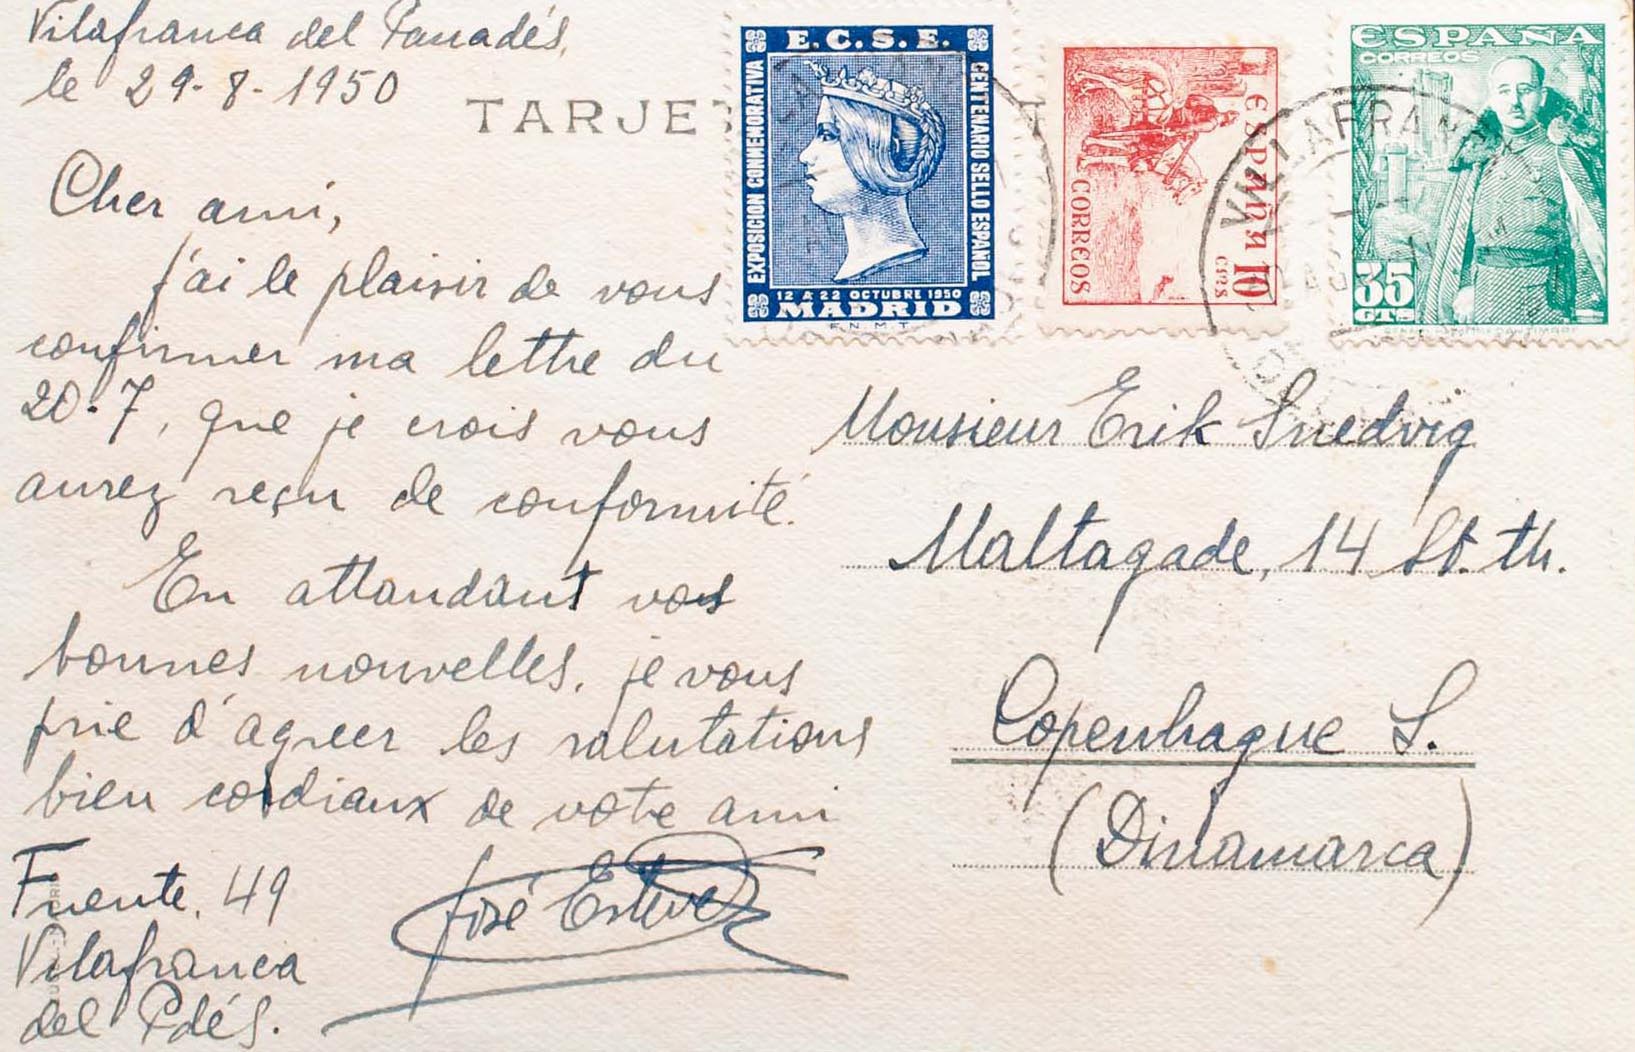 Vilafranca del Panadés,
le 29-8-1950
TARJE
Cher ami,
j'ai le plaisir de vous
confirmer ma lettre du
20-7, que je crois vous
aurez reçu de conformité.
En attandant vos
bonnes nouvelles, je vous
prie d'agreer les salutations
bien cordiaux de votre ami
José Esteve
Fuente, 49
Vilafranca
del Pdés.
E.C.S.E.
EXPOSICION CONMEMORATIVA
CENTENARIO SELLO ESPAÑOL
12 A 22 OCTUBRE 1950
MADRID
F.N.M.T.
ESPAÑA
CORREOS
10
CTS
ESPAÑA
CORREOS
35
CTS
VILLAFRAN
Monsieur Erik Snedvig
Maltagade, 14 St. th.
Copenhague S.
(Dinamarca)